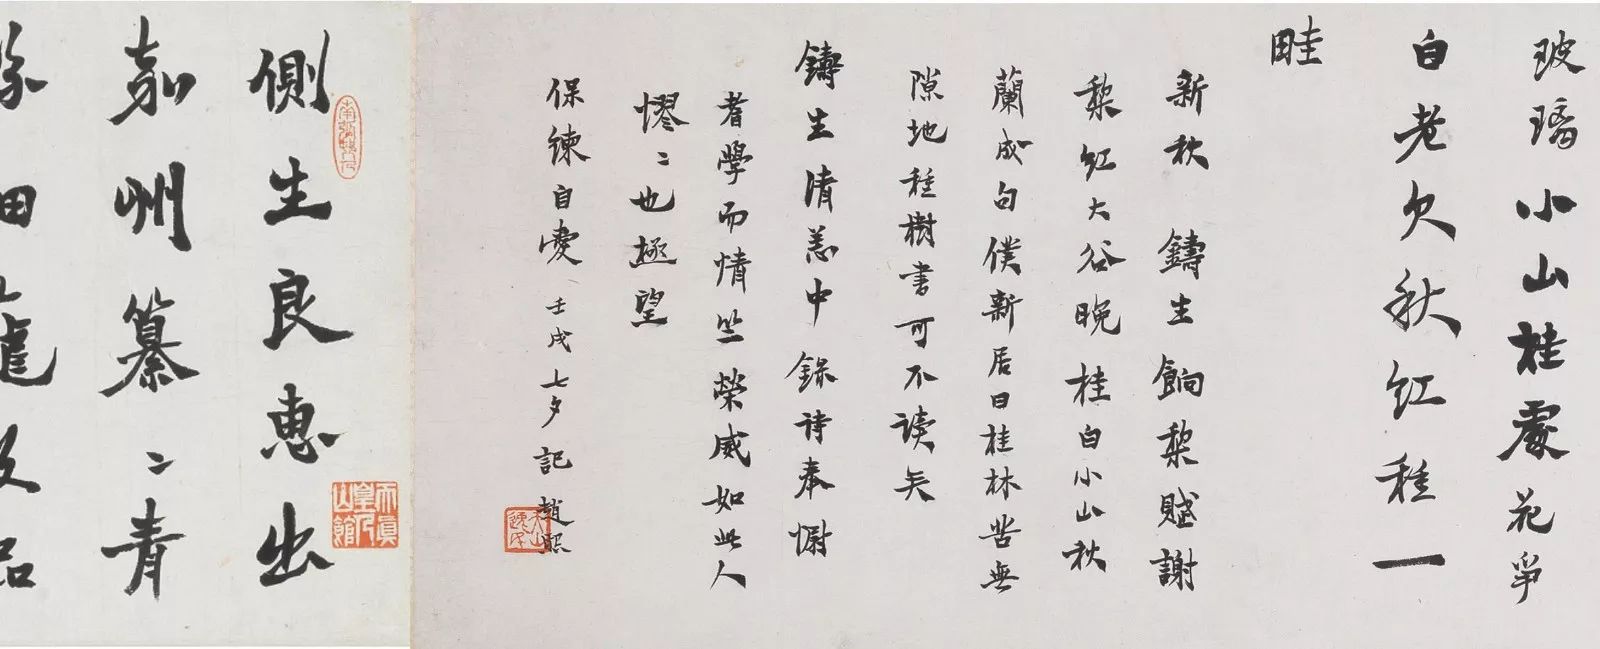 玻璃小山桂處花爭
白老欠秋紅種一
畦
新秋 鑄生餉棃賦謝
棃紅大谷晚桂白小山秋
蘭成句僕新居曰桂林苦無
隙地種樹書可不读矣
鑄生清恙中錄诗奉慰
者學而情竺榮感如此人
懰〻也極望
保練自愛 壬戌七夕記 趙熙
側生良惠出
嘉州纂〻青